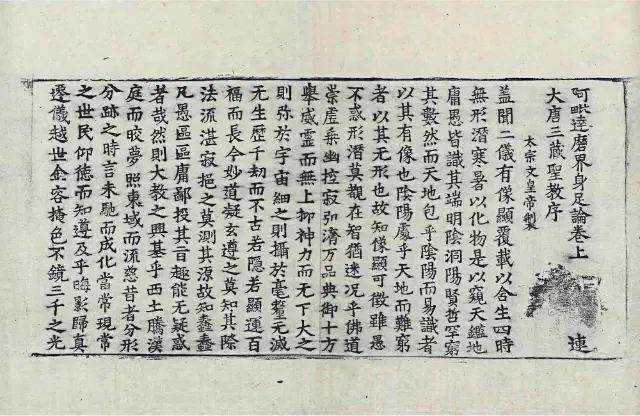 阿毗達磨界身足論卷上 連
大唐三藏聖教序
太宗文皇帝製
盖聞二儀有像顯覆載以含生四時
無形潛寒暑以化物是以窺天鑑地
庸愚皆識其端明陰洞陽賢哲罕窮
其數然而天地包乎陰陽而易識者
以其有像也陰陽處乎天地而難窮
者以其无形也故知像顯可徵雖愚
不惑形潛莫覩在智猶迷况乎佛道
崇虛乘幽控寂弘濟万品典御十方
舉威靈而無上抑神力而无下大之
則弥於宇宙細之則攝於毫釐无滅
无生歷千劫而不古若隱若顯運百
福而長今妙道凝玄遵之莫知其際
法流湛寂挹之莫測其源故知蠢蠢
凡愚區區庸鄙投其旨趣能无疑惑
者哉然則大教之興基乎西土騰漢
庭而皎夢照東域而流慈昔者分形
分跡之時言未馳而成化當常現常
之世民仰德而知遵及乎晦影歸真
遷儀越世金容掩色不鏡三千之光